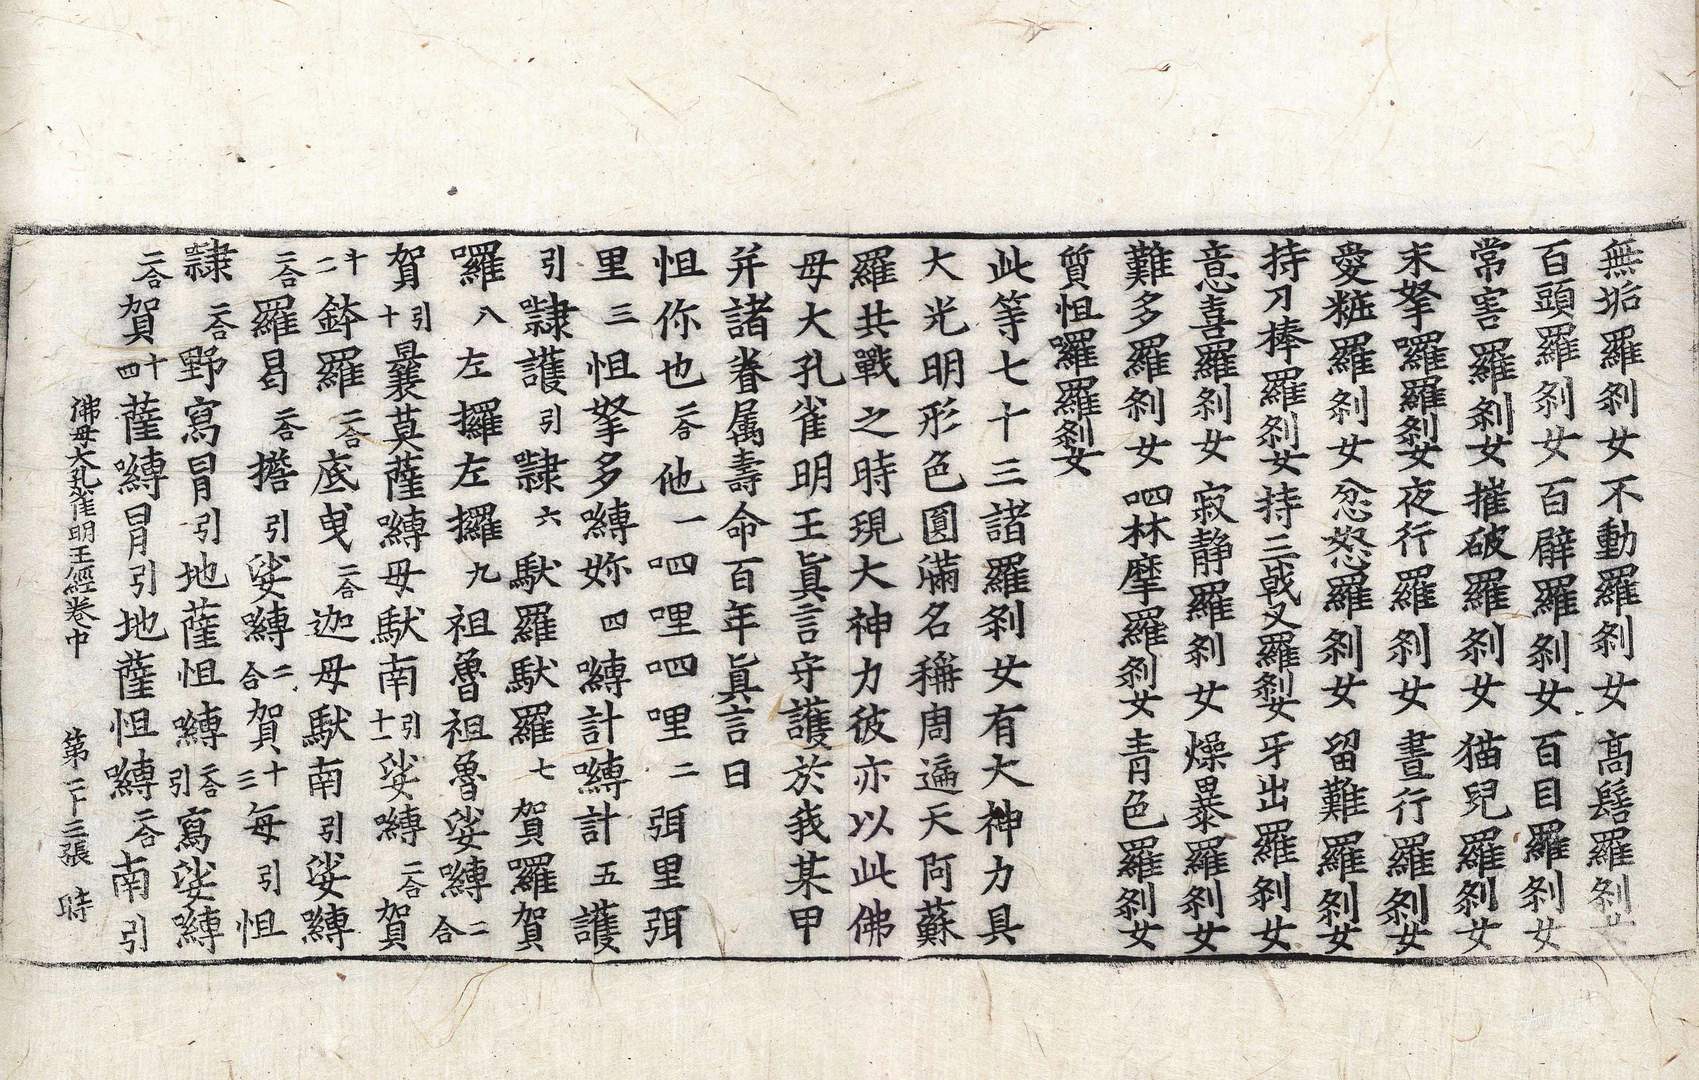 無垢羅刹女不動羅刹女高髻羅刹女
百頭羅刹女百臂羅刹女百目羅刹女
常害羅刹女摧破羅刹女猫兒羅刹女
末拏囉羅刹女夜行羅刹女晝行羅刹女
愛粧羅刹女忿怒羅刹女留難羅刹女
持刀棒羅刹女持三戟叉羅刹女牙出羅刹女
意喜羅刹女寂静羅刹女燥暴羅刹女
難多羅刹女呬林摩羅刹女青色羅刹女
質怛囉羅刹女
此等七十三諸羅刹女有大神力具
大光明形色圓滿名稱周遍天阿蘇
羅共戰之時現大神力彼亦以此佛
母大孔雀明王眞言守護於我某甲
并諸眷属壽命百年眞言曰
怛你也二合他一呬哩呬哩二弭里弭
里三怛拏多嚩妳四嚩計嚩計五護
引隸護引隸六馱羅馱羅七賀羅賀
囉八左攞左攞九祖魯祖魯娑嚩二合
賀引十曩莫薩嚩母馱南引十一娑嚩二合賀
十二鉢羅二合底曵二合迦母馱南引娑嚩
二合羅曷二合擔引娑嚩二合賀十三每引怛
隸二合野寫冐引地薩怛嚩二合引寫娑嚩
二合賀十四薩嚩冐引地薩怛嚩二合南引
佛母大孔雀明王經卷中 第二十三張 時